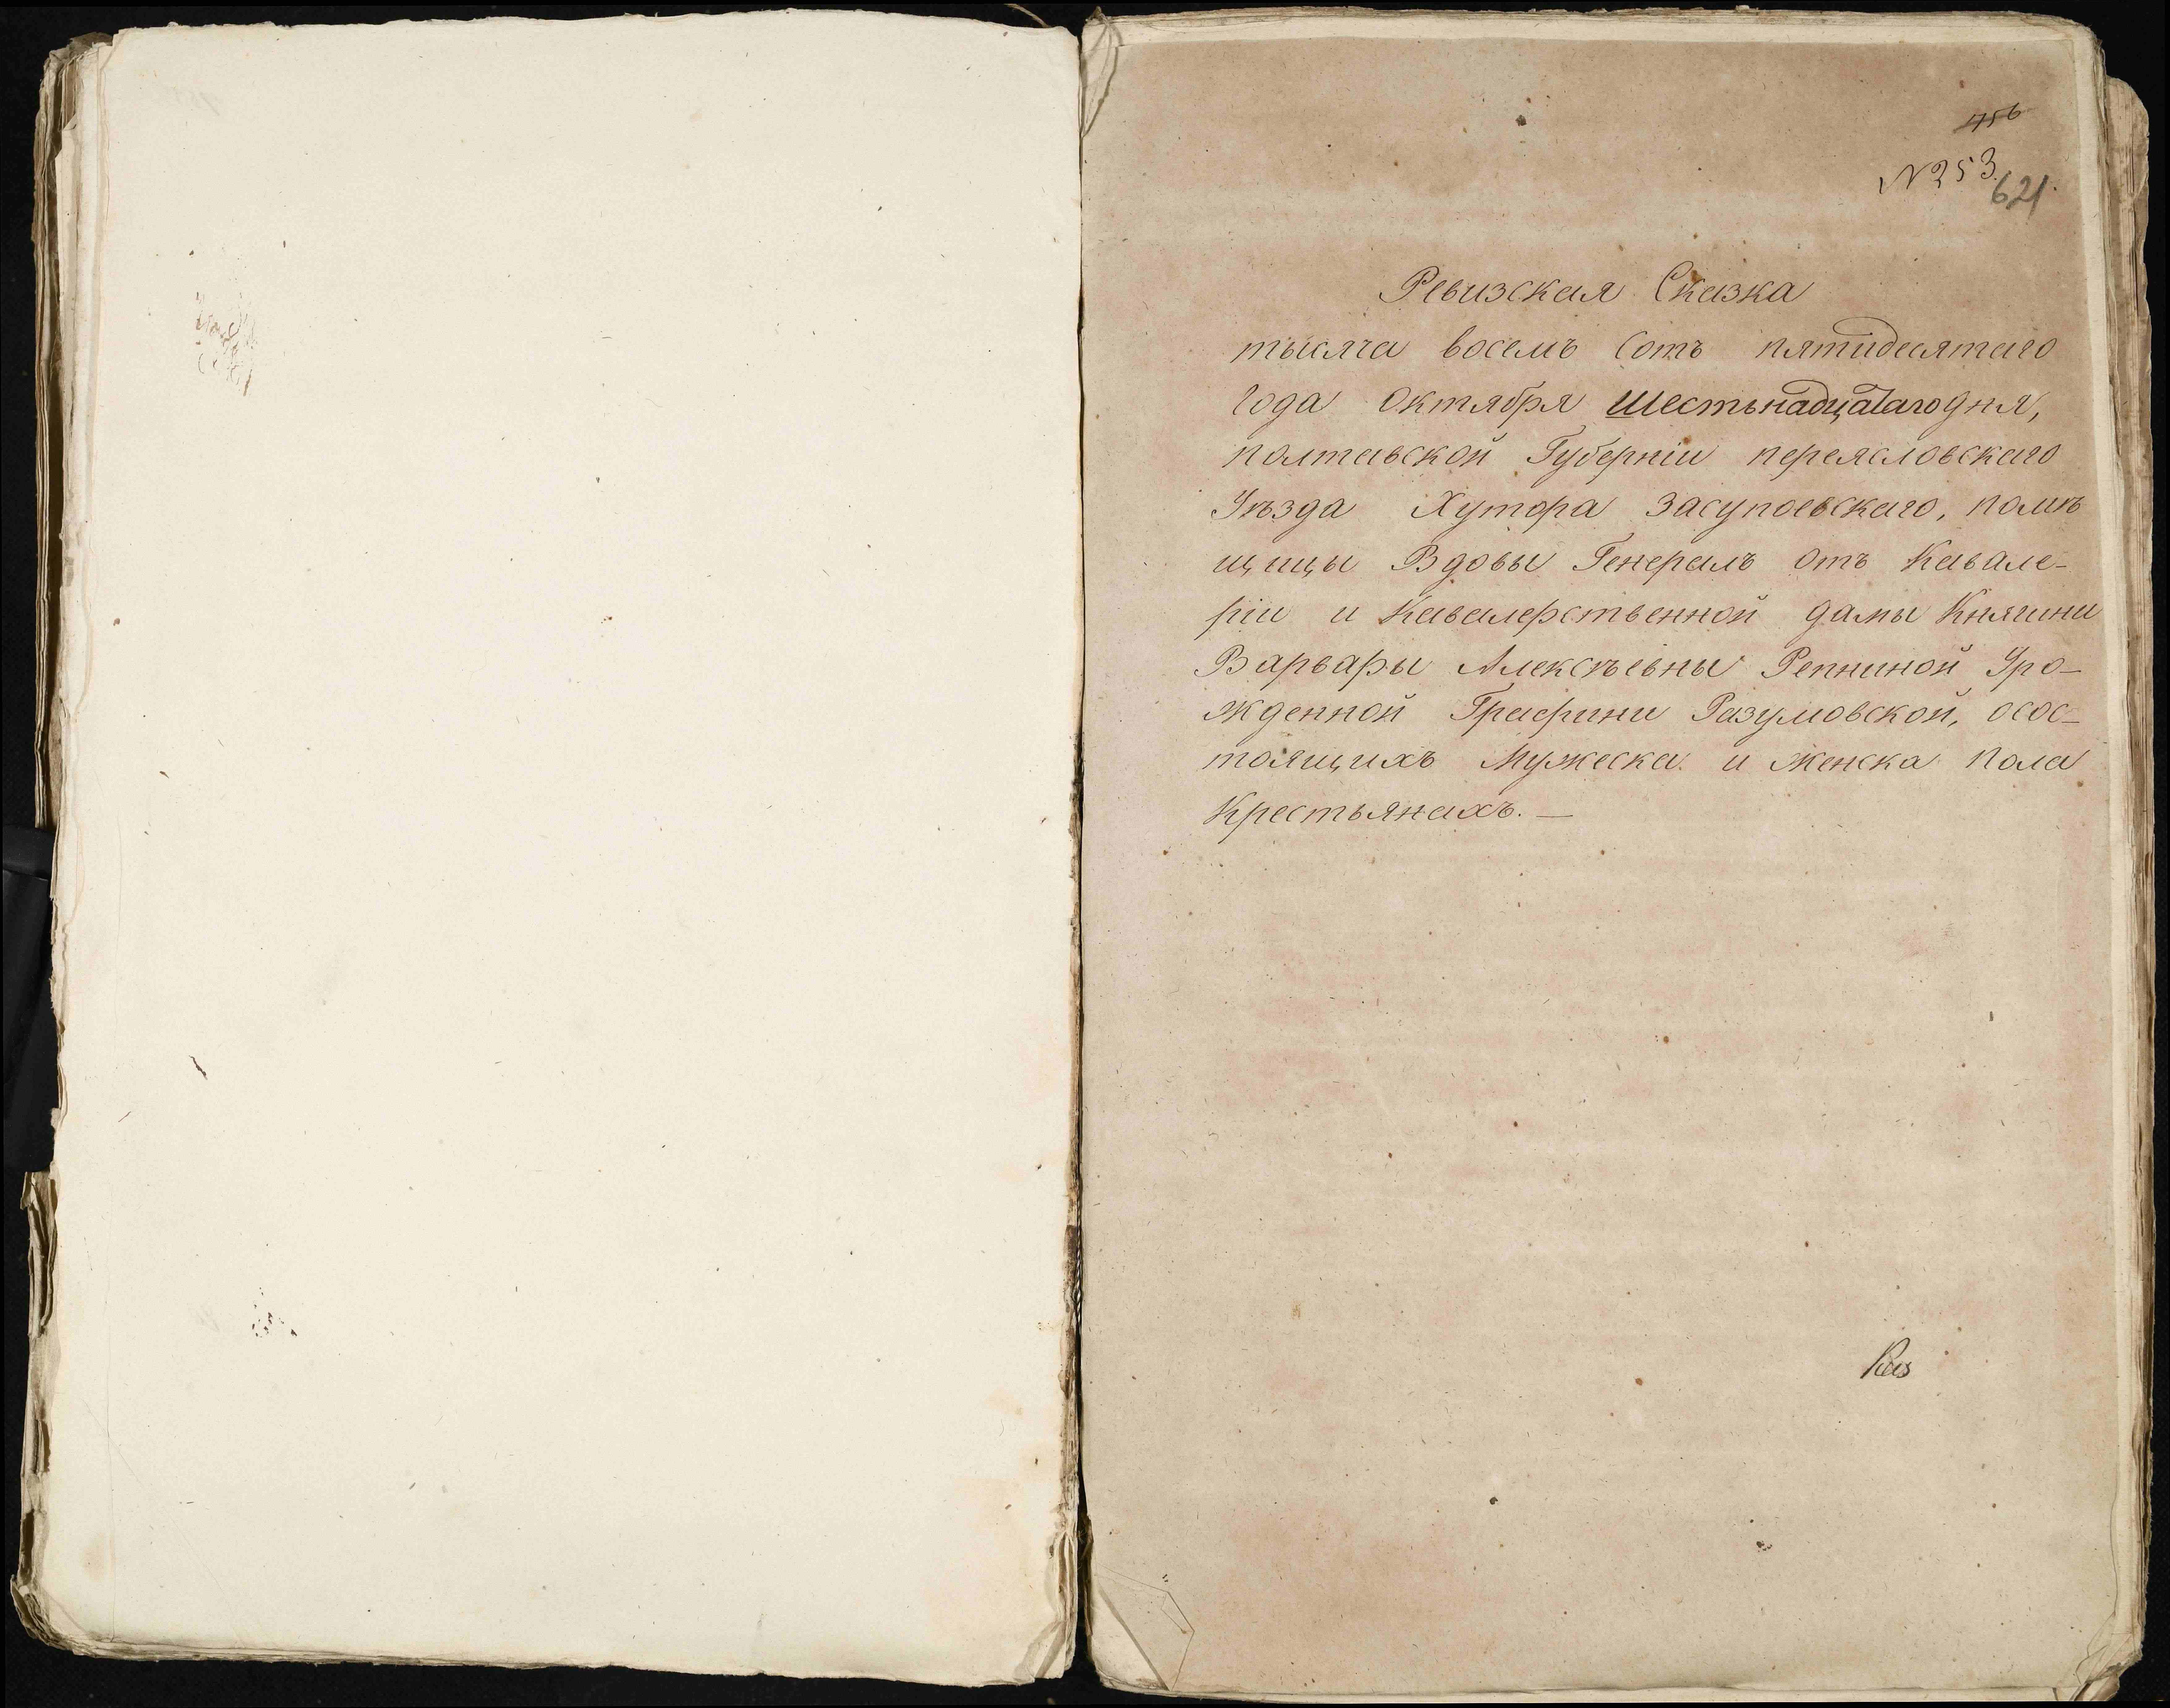 456
№253.
621.
Ревизская Сказка
тысяча восемь сотъ пятидесятаго
Года Октября Шестьнадцатаго дня,
полтавской Губерніи переясловскаго
Уѣзда Хутора Засупоевскаго, помѣ
щицы Вдовы Генералъ отъ Кавале-
ріи и Кавалерственной дамы Княгини
Варвары Алексѣевны Репниной Уро-
жденной Графини Разумовской, осос-
тоящихъ Мужеска и женска пола
Крестьянахъ. —